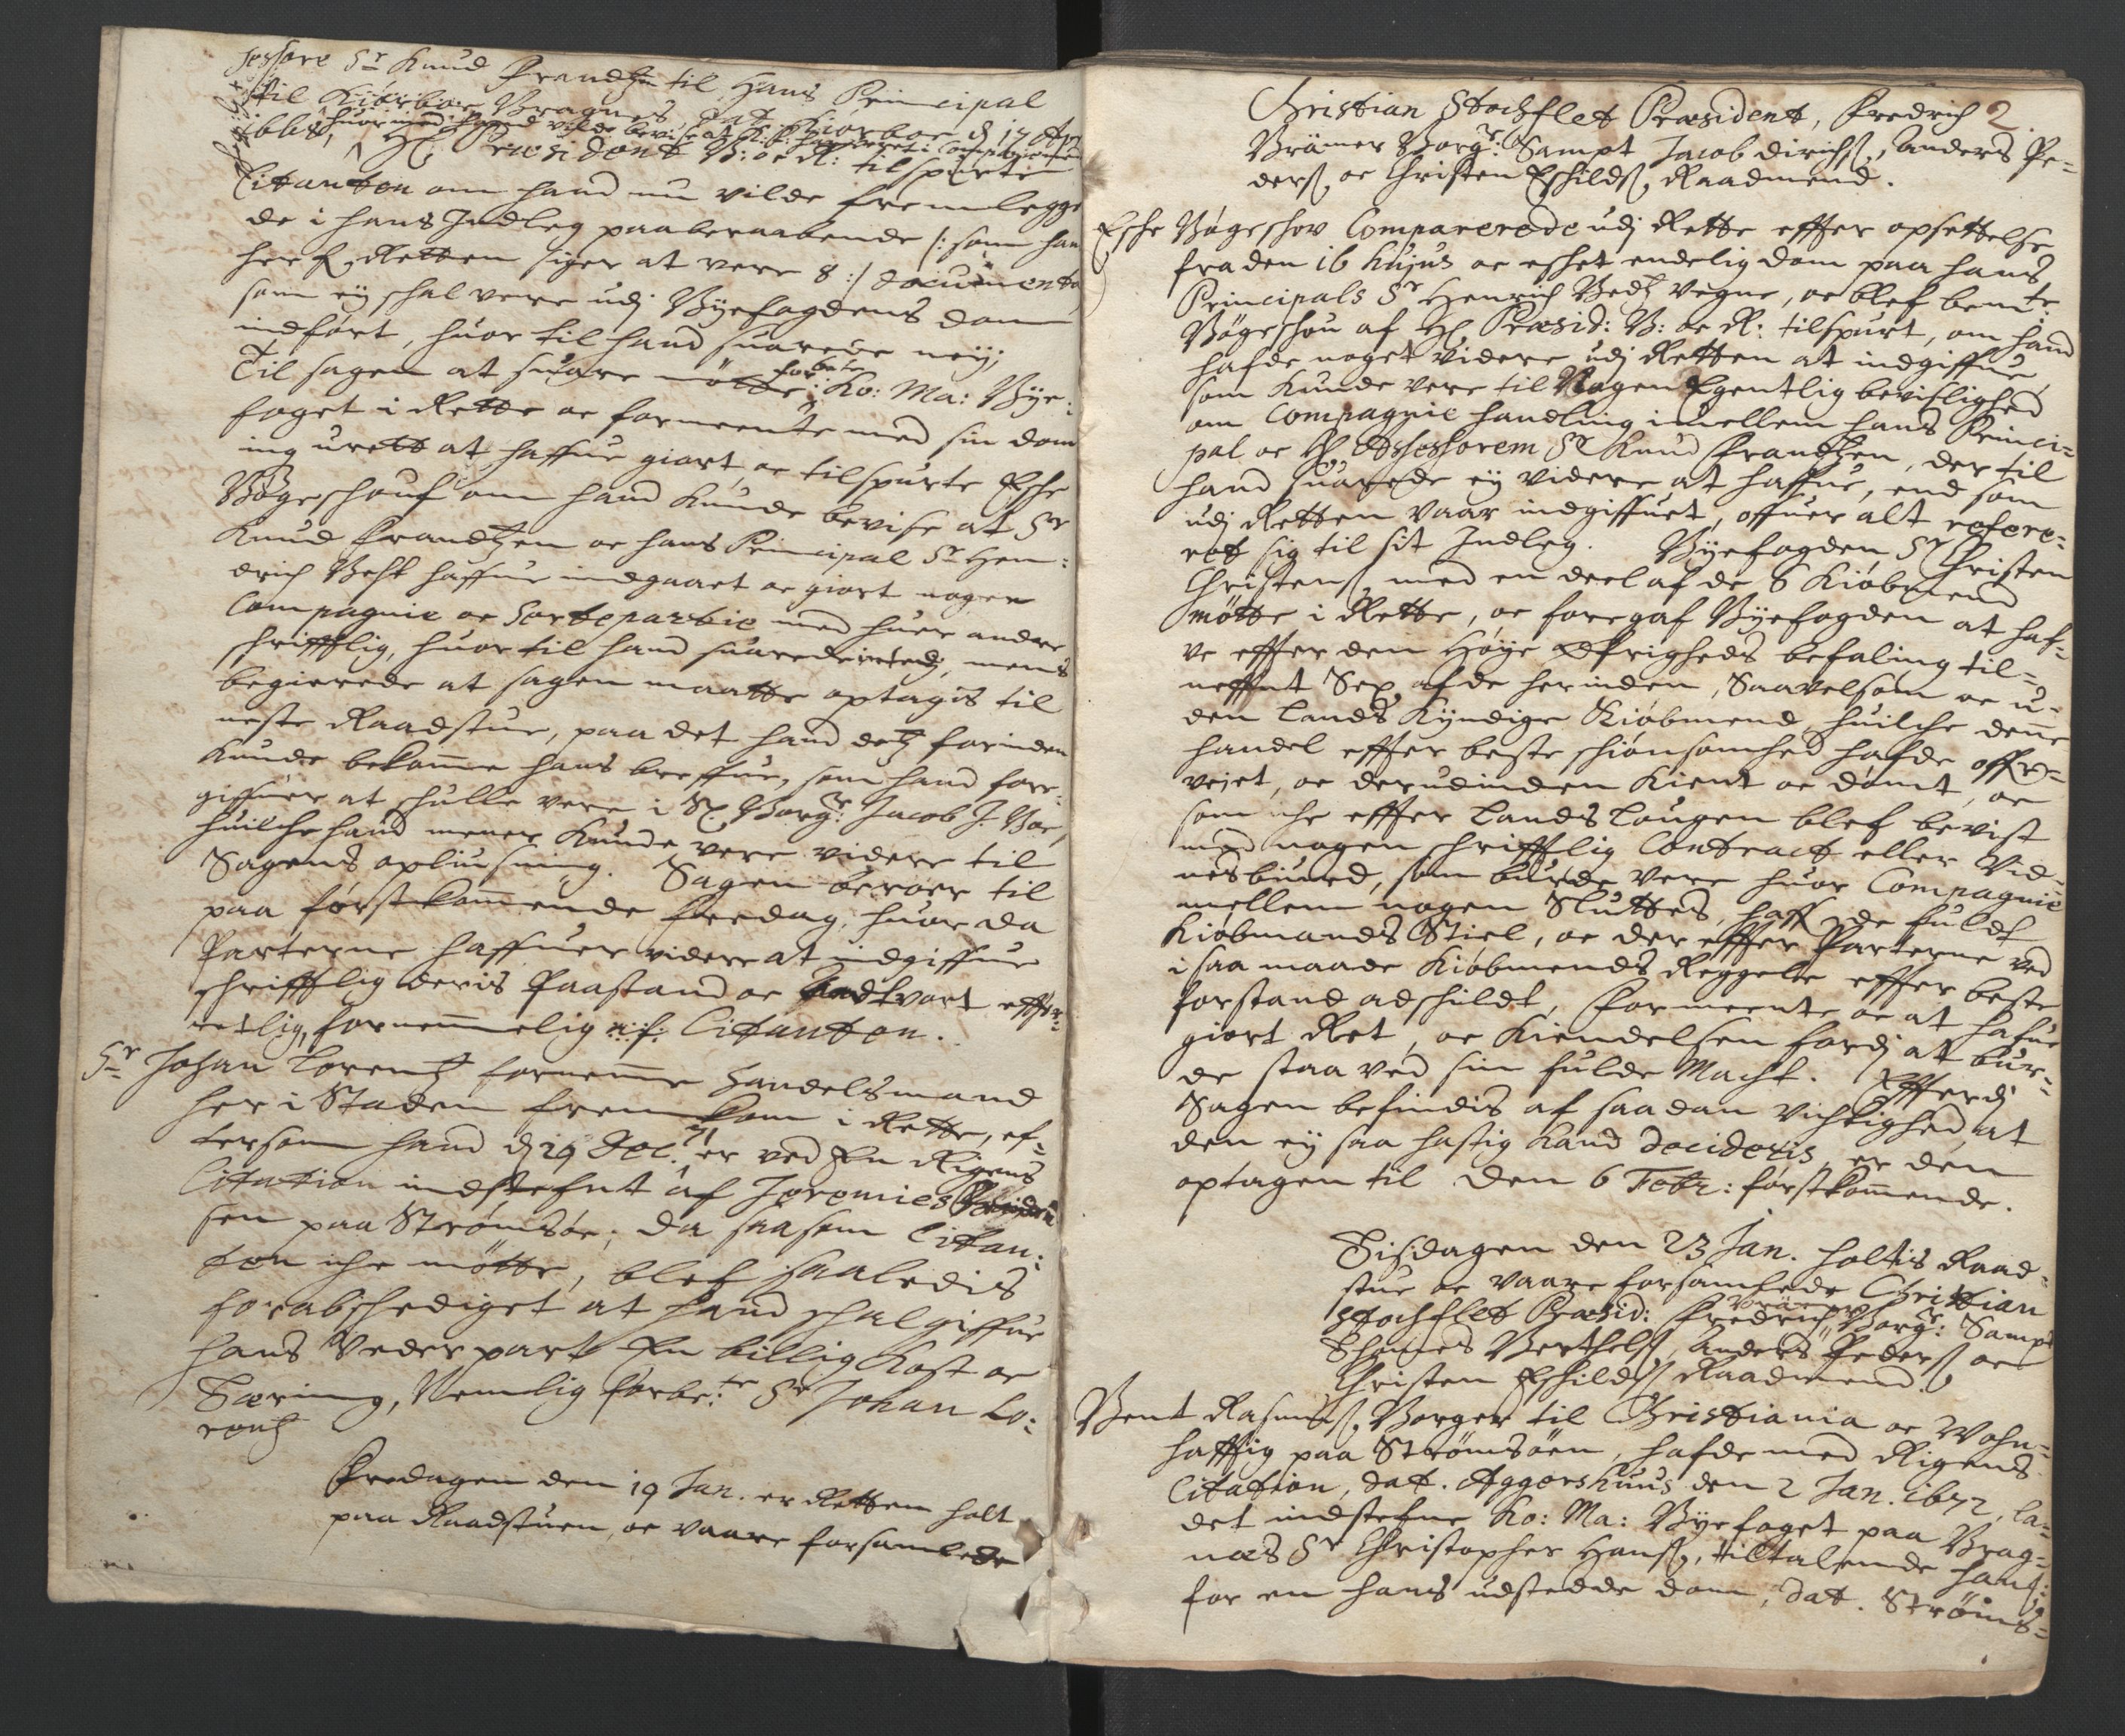 sessore Sr Knud Frandtzen til Hans Principal
til Kiørboe Bragnes, dat. Kiørboe d 17 Apr
1668, Hr Præsident B: oc R: tilspurte
huormed hand vilde bevise at
Citanten om hand nu vilde fremlegge
de i hans Indleg paaberaabende /: som han
her f. Retten siger at vere 8 :/ documenter
som ey schal vere udj Byefogdens dom
indført, huor til hand suarede ney;
Til sagen at suare møtte forbete: Ko: Ma: Bye:
foget i Rette oc formeente med sin dom
ing urett at haffue giort, oc tilspurte Esche
Bøgeschouf om hand kunde bevise at Sr
Knud Frandtzen oc hans Principal Sr Hen:
drich Beht haffue indgaaet oc giort nogen
Compagnie oc Sorteparbie med huer andre
schrifftlig, huor til hand suarede intedj, mens
begierede at sagen maatte optagis til
neste Raadstue, paa det hand detz forinden
kunde bekomme hans breffue, som hand fore:
giffuer at schulle vere i Sl. Borgr: Jacob J. Boe,
huilche hand mener kunde vere videre til
Sagens opliusning. Sagen beroer til
paa førstkommende Fredag, huor da
Parterne haffuer videre at indgiffue
schrifftlig deris Paastand oc Andtvort effter
retlig, fornemmelig Citanten.
Sr Johan Lorentz fornemme Handelsmand
her i Staden fremkom i Rette, ef=
tersom hand d 29 Dec. 71 er ved En Rigens
Citation indstefnt af Jeremies
sen paa Strømsøe; da saasom Citan:
ten iche møtte, blef saaledis
forabschediget at hand schal giffue
hans Vederpart En billig kost oc
Tæring, Nemlig forbe:te Sr Johan Lo:
rentz
Fredagen den 19 Jan. er Retten holt
paa Raadstuen, oc vaare forsamlede
2.
Christian Stochflet Præsident, Fredrich
Brämer Borgr: Sampt Jacob dirichs., Anders Pe=
ders. oc Christen Eschilds. Raadmend.
Esche Bøgeschov Comparerede udj Rette effter opsettelse
fra den 16 hujus oc eschet endelig dom paa hans
Principals Sr Henrich Behtz vegne, oc blef bemte:
Bøgeschou af Hr Præsid: B: oc R: tilspurt, om hand
hafde noget videre udj Retten at indgiffue
som kunde vere til Nogen Egentlig bevislighed
om Compagnie handling imellem hans Princi=
pal oc Hr Assessorem Sr Knud Frandtzen, der til
hand suarede ey videre at haffue, end som
udj Retten vaar indgiffuet, offuer alt refere=
ret sig til sit Indleg. Byefogden Sr Christen
Christens. med en deel af de 6 Kiøbmend
møtte i Rette, oc foregaf Byefogden at haf=
ve effter den Høye Øfrigheds befaling til=
neffnt Sex af de herinden, Saavelsom oc u=
den Lands Kyndige Kiøbmend, huilche denne
handel effter beste schiønsomhed hafde offr=
vejet, oc derudinden kient oc dømt, oc
som iche effter Lands Lougen blef bevist
med nogen schrifftlig Contract eller Vid=
nesbiurd, som burde vere huor Compagnie
mellem nogen Sluttes, haffde fuldt
Kiøbmands Stiel, oc der effter Parterne ved
i saa maade Kiøbmends Reggele effter beste
forstand adschildt, formeente oc at hafue
giort Ret, oc Kiendelsen fordj at bur=
de staa ved sin fulde Macht. Effterdj
Sagen befindis af saadan vichtighed, at
den ey saa hastig kand decideris, er den
optagen til den 6 Febr: førstkommende.
Tisdagen den 23 Jan. holtis Raad=
stue oc vaare forsamlede Christian
Stochflet Præsid: Fredrich Brämer Borgr: Sampt
Thomes Berthels., Anders Peders. oc
Christen Eschilds. Raadmend.
Bent Rasmus. Borger til Christiania oc Wohn=
hafftig paa Strømsøen, hafde med Rigens
Citation, dat. Aggershuus den 2 Jan. 1672, la=
det indstefne Ko: Ma: Byefoget paa Brag=
næs Sr Christopher Hans., tiltalende hans:
for en hans udstedde dom, dat. Strøms=